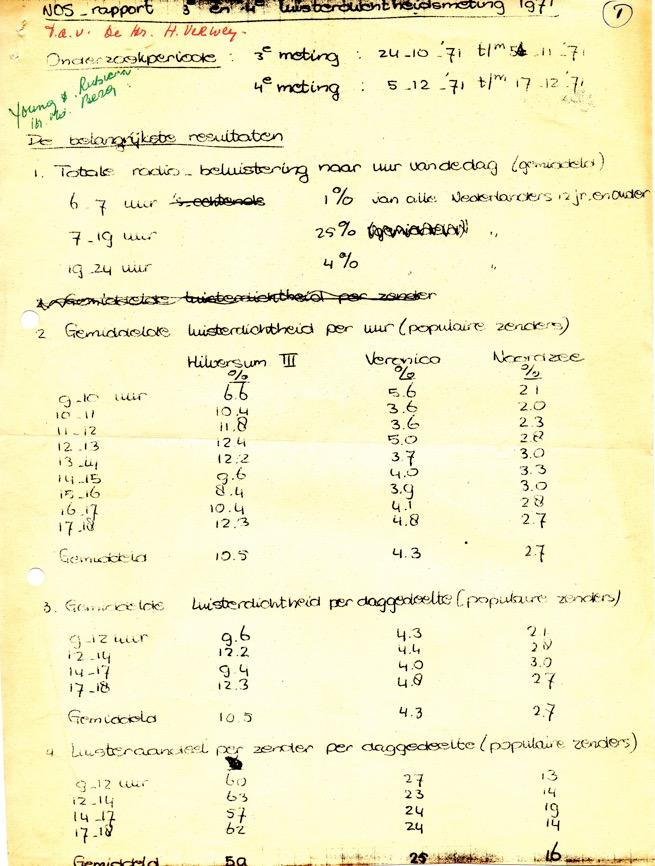 NOS-rapport 3e en 4e luisterdichtheidsmeting 1971
1
T.a.v. De Hr. H. Verwey.
Onderzoekperiode : 3e meting : 24-10-'71 t/m 5-11-'71
4e meting : 5-12-'71 t/m 17-12-'71
Young & Rubicam
De belangrijkste resultaten
1. Totale radio-beluistering naar uur van de dag (gemiddeld)
6-7 uur 's echtends 1% van alle Nederlanders 12 jr. en ouder
7-19 uur 25% (gemiddeld) "
19-24 uur 4% " "
2. Gemiddelde luisterdichtheid per zender
2 Gemiddelde luisterdichtheid per uur (populaire zenders)
Hilversum III Veronica Noordzee
% % %
9-10 uur 6.6 5.6 2.1
10-11 10.4 3.6 2.0
11-12 11.8 3.6 2.3
12-13 12.4 5.0 2.8
13-14 12.2 3.7 3.0
14-15 9.6 4.0 3.3
15-16 8.4 3.9 3.0
16-17 10.4 4.1 2.8
17-18 12.3 4.8 2.7
Gemiddeld 10.5 4.3 2.7
3. Gemiddelde luisterdichtheid per daggedeelte (populaire zenders)
9-12 uur 9.6 4.3 2.1
12-14 12.2 4.4 2.8
14-17 9.4 4.0 3.0
17-18 12.3 4.8 2.7
Gemiddeld 10.5 4.3 2.7
4. Luisteraandeel per zender per daggedeelte (populaire zenders)
9-12 uur 60 27 13
12-14 63 23 14
14-17 57 24 19
17-18 62 24 14
Gemiddeld 59 25 16